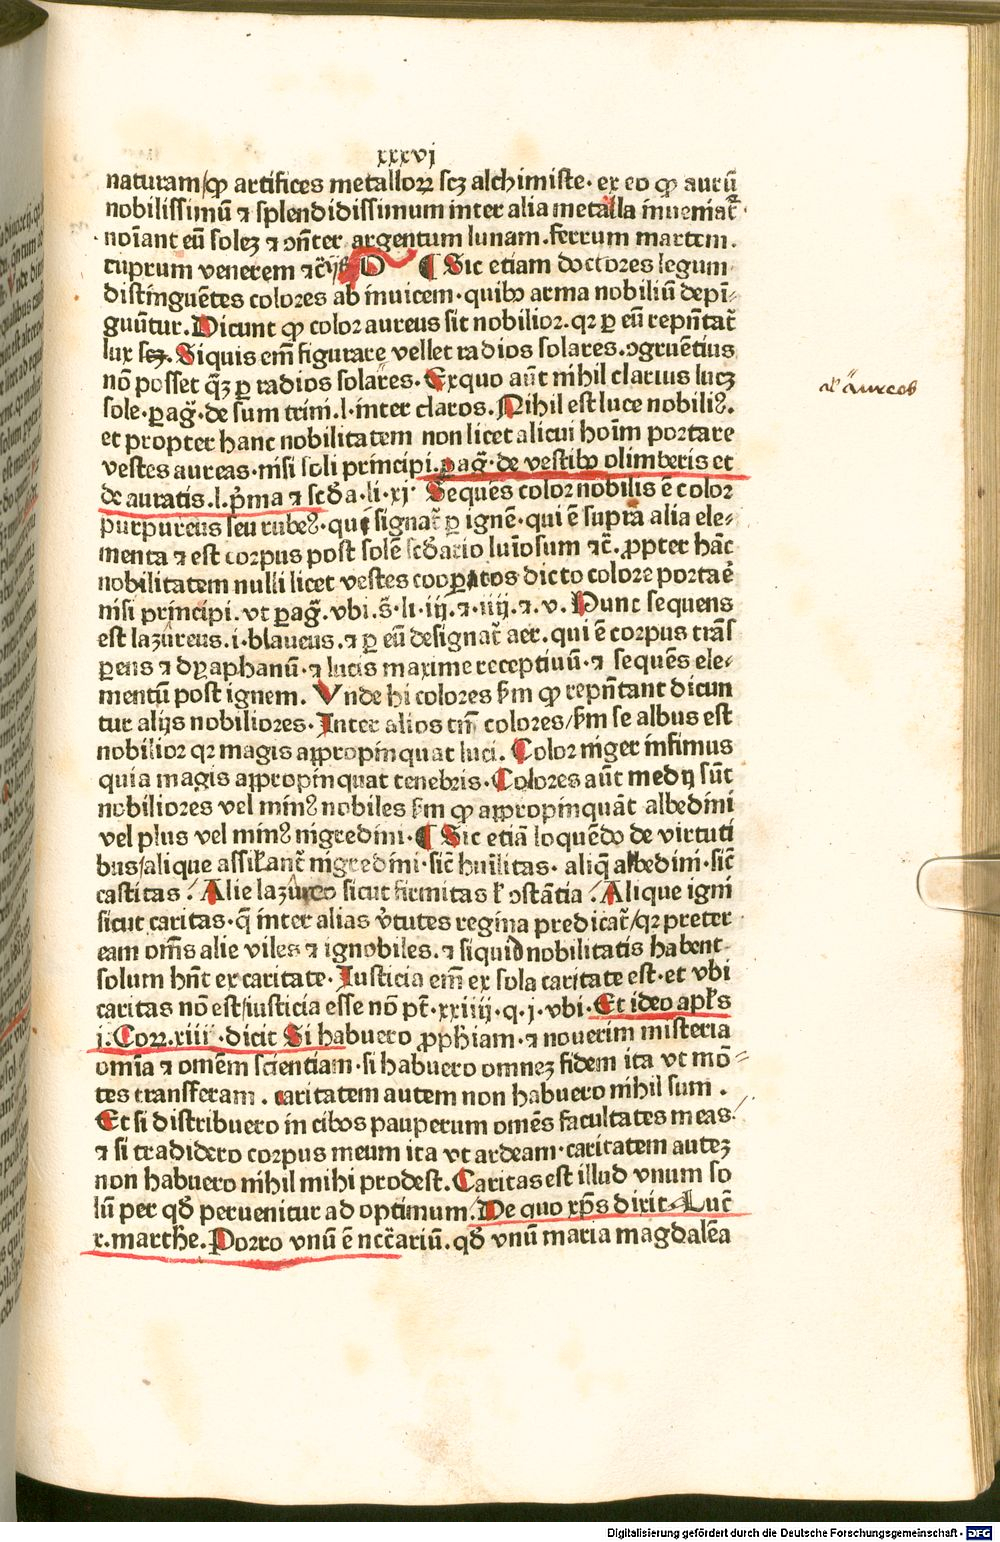 xxxvj
naturam/ꝙ artifices metalloꝝ scꝫ alchimiste· ex eo ꝙ aurū
nobilissimū ⁊ splendidissimum inter alia metalla inueniat᷑·
noīant eū solez ⁊ ꝯn̄ter argentum lunam. ferrum martem.
cuprum venerem ⁊
¶ Sic etiam doctores legum
distinguētes colores ab inuicem· quibꝰ arma nobiliū depī⸗
guūtur. Dicunt ꝙ color aureus sit nobilior. qꝛ ꝑ eū rep̄ntat᷑
lux Siquis em̄ figurare vellet radios solares. ꝯgruētius
nō posset q̄ꝫ ꝑ radios solares. Exquo aūt nihil clarius lucꝫ
al' aureos
sole· ꝑ aḡ· de sum trini. l· inter claros. Nihil est luce nobiliꝰ.
et propter hanc nobilitatem non licet alicui hoīm portare
vestes aureas· nisi soli principi. ꝑ aḡ· de vestibꝰ olimberis et
de auratis. l. p̄ma ⁊ scd̄a· li· xj· Sequēs color nobilis ē color
purpureus seu rubeꝰ· qui signat᷑ ꝑ ignē· qui ē supra alia ele⸗
menta ⁊ est corpus post solē scd̄ario lumīosum ⁊c̄. ꝓpter hāc
nobilitatem nulli licet vestes dicto colore
nisi principi. vt ꝑ aḡ. vbi. s̄· li· iij· ⁊· iiij. ⁊. v. Nunc sequens
est lazureus. i· blaueus. ⁊ ꝑ eū designat᷑ aer. qui ē corpus trās
ꝑens ⁊ dyaphanū· ⁊ lucis maxime receptiuū· ⁊ sequēs ele⸗
mentū post ignem. Vnde hi colores ẜm ꝙ rep̄ntant dicun
tur alijs nobiliores. Inter alios tn̄ colores/ẜm se albus est
nobilior qꝛ magis appropinquat luci. Color niger infimus
quia magis appropinquat tenebris. Colores aūt medij sūt
nobiliores vel minꝰ nobiles ẜm ꝙ appropinquāt albedini
vel plus vel minꝰ nigredini· ¶ Sic etiā loquēdo de virtuti
bus/alique assil'ant᷑ nigredini· sic̄ huīlitas· aliq̄ albedini· sic̄
castitas· Alie lazureo sicut firmitas l' ꝯstātia· Alique igni
sicut caritas· q̄ inter alias v̄tutes regina predicat᷑/qꝛ preter
eam om̄s alie viles ⁊ ignobiles. ⁊ siquid nobilitatis habent
solum hn̄t ex caritate· Iusticia em̄ ex sola caritate est· et vbi
caritas nō est/iusticia esse nō pt̄· xxiiij· q· j· vbi· Et ideo apl's
j. Coꝝ. xiij· dicit Si habuero ꝓphiam· ⁊ nouerim misteria
omīa ⁊ omēm scientiam· si habuero omnez fidem ita vt mō⸗
tes transferam. caritatem autem non habuero nihil sum.
Et si distribuero in cibos pauperum omēs facultates meas
⁊ si tradidero corpus meum ita vt ardeam· caritatem autez
non habuero nihil mihi prodest. Caritas est illud vnum so
lū per qd̄ peruenitur ad optimum. De quo xp̄s dixit Luc̄
x. marthe. Porro vnū ē ncc̄ariū. qd̄ vnū maria magdalēa
Digitalisierung gefördert durch die Deutsche Forschungsgemeinschaft - DFG